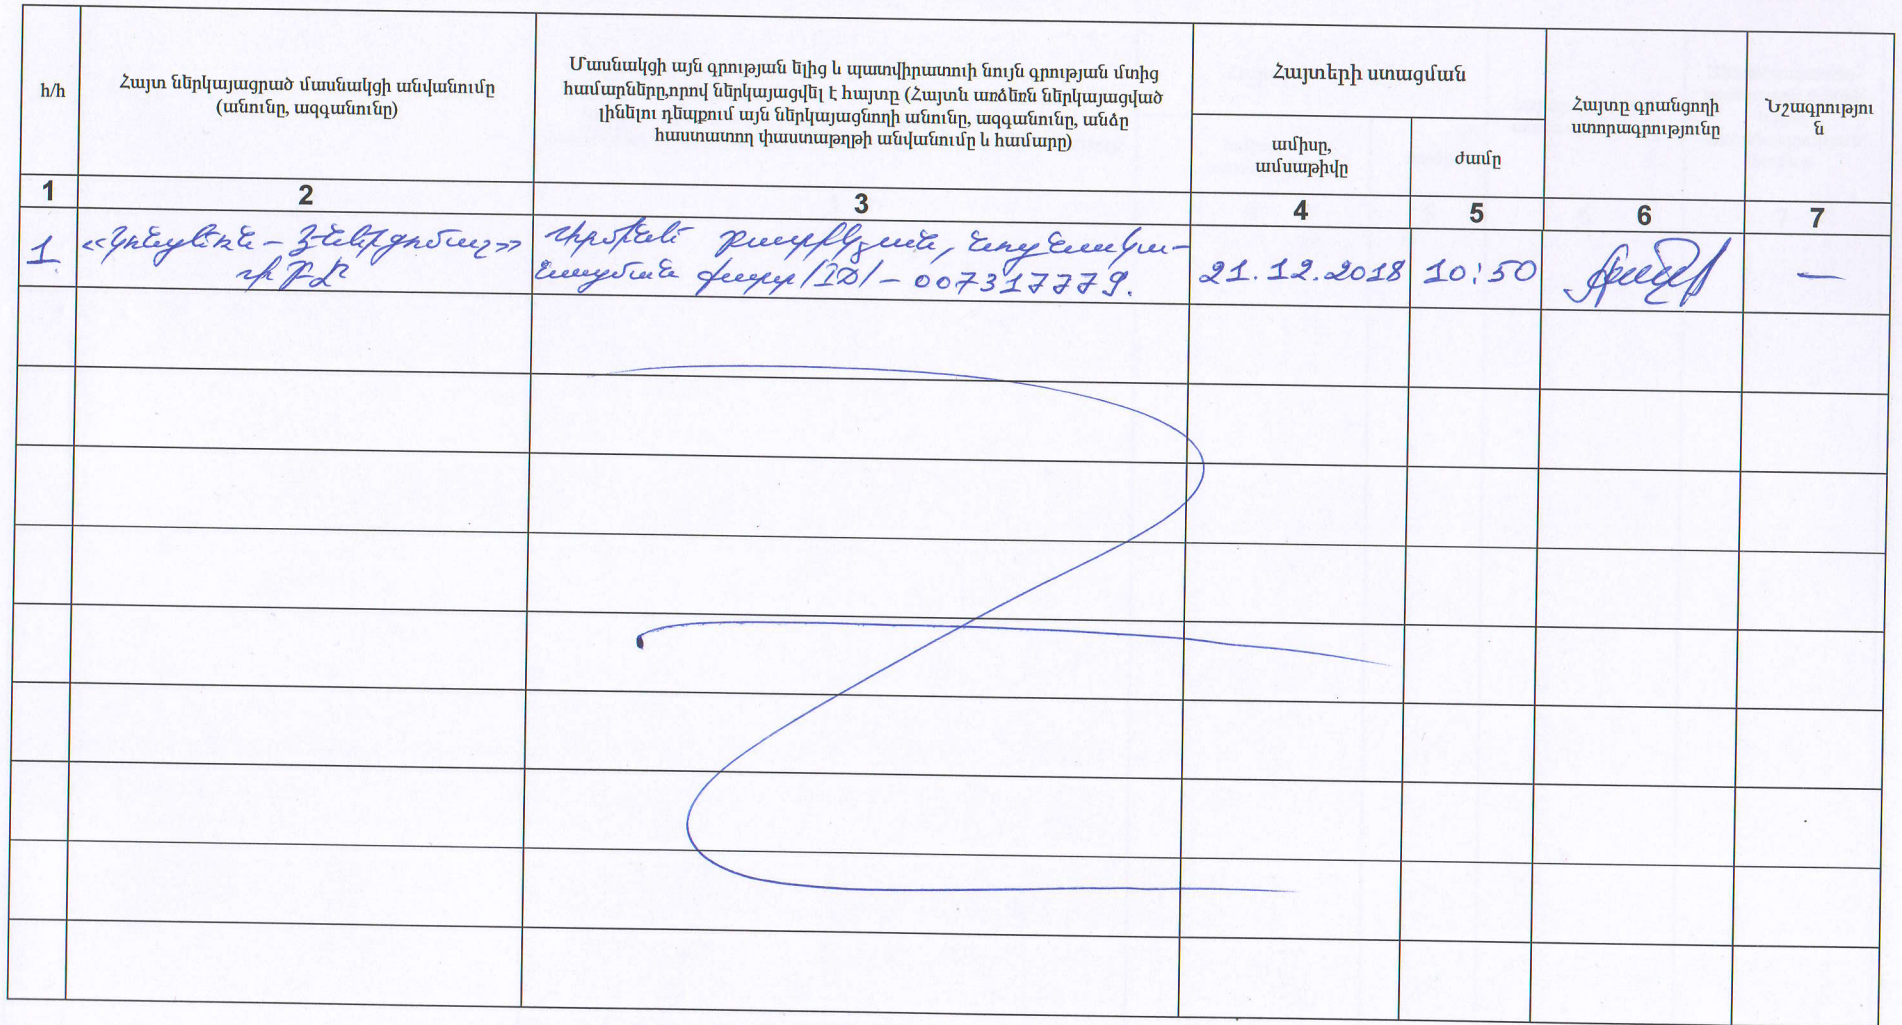 հ/հ
Հայտ ներկայացրած մասնակցի անվանումը
(անունը, ազգանունը)
Մասնակցի այն գրության ելից և պատվիրատուի նույն գրության մտից
համարները,որով ներկայացվել է հայտը (Հայտն առձեռն ներկայացված
լինելու դեպքում այն ներկայացնողի անունը, ազգանունը, անձը
հաստատող փաստաթղթի անվանումը և համարը)
Հայտերի ստացման
ամիսը,
ամսաթիվը
ժամը
Հայտը գրանցողի
ստորագրությունը
Նշագրությու
ն
1 2 3 4 5 6 7
1
ՓԲԸ
քարտ /ID/ – 007317779.
21.12.2018 10:50 —